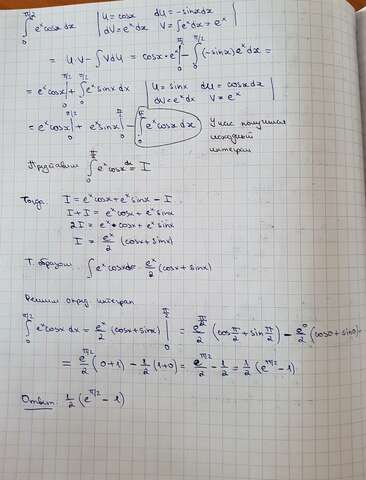 ∫₀^{π/2} eˣcosx dx | U = cosx dU = -sinxdx
dV = eˣdx V = ∫eˣdx = eˣ |
= U·V - ∫VdU = cosx·eˣ |₀^{π/2} - ∫₀^{π/2} (-sinx)eˣdx =
= eˣcosx |₀^{π/2} + ∫₀^{π/2} eˣsinx dx | U = sinx dU = cosxdx
dV = eˣdx V = eˣ |
= eˣcosx |₀^{π/2} + eˣsinx |₀^{π/2} - ∫₀^{π/2} eˣcosx dx У нас получился
исходный
интеграл
∫₀^{π/2} eˣcosx dx = I
Тогда I = eˣcosx + eˣsinx - I
I + I = eˣcosx + eˣsinx
2I = eˣcosx + eˣsinx
I = eˣ/2 (cosx + sinx)
Т. образом ∫eˣcosxdx = eˣ/2 (cosx + sinx)
Решим опред. интеграл
∫₀^{π/2} eˣcosx dx = eˣ/2 (cosx + sinx) |₀^{π/2} = e^{π/2}/2 (cos π/2 + sin π/2) - e⁰/2 (cos0 + sin0) =
= e^{π/2}/2 (0+1) - 1/2 (1+0) = e^{π/2}/2 - 1/2 = 1/2 (e^{π/2} - 1)
Ответ: 1/2 (e^{π/2} - 1)